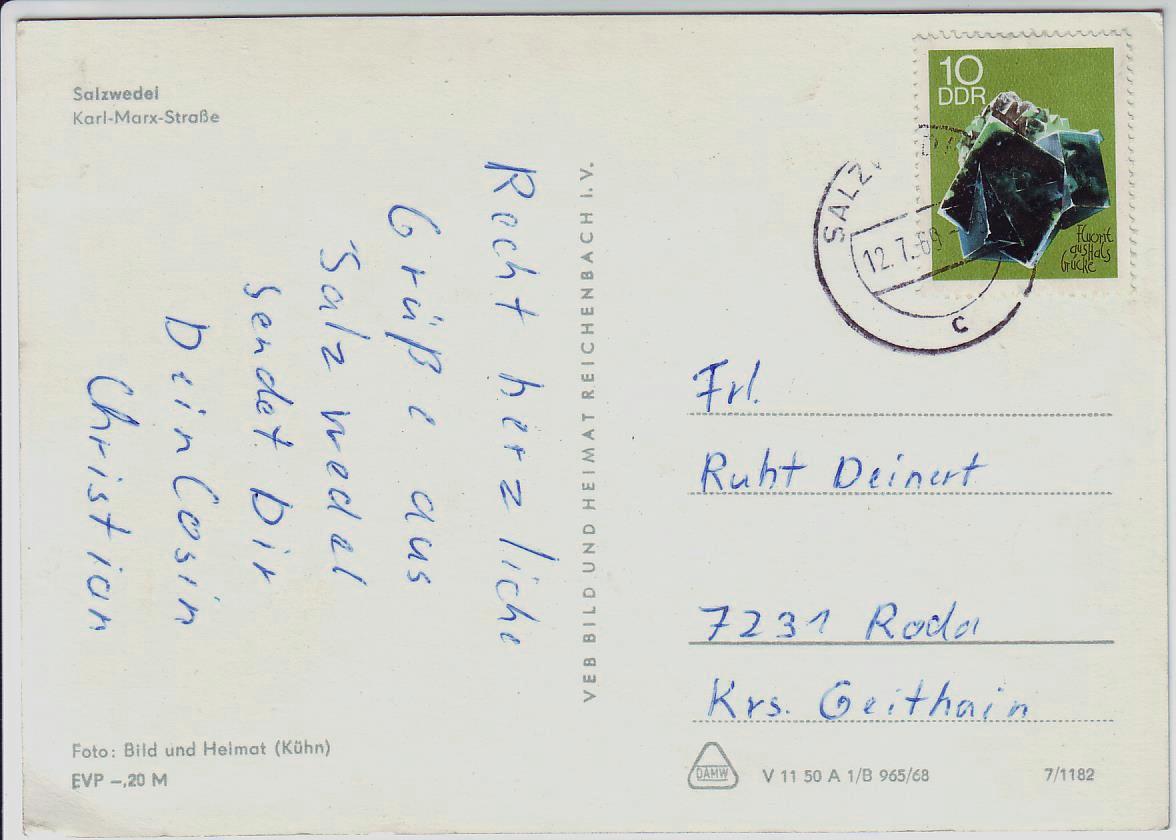 Salzwedel
Karl-Marx-Straße
Recht herzliche
Grüße aus
Salzwedel
sendet Dir
Dein Cosin
Christian
Foto: Bild und Heimat (Kühn)
EVP –,20 M
VEB BILD UND HEIMAT REICHENBACH I.V.
10
DDR
Fluorit
aus Hals
brücke
12.7.69
c
Frl.
Ruht Deinert
7231 Roda
Krs. Geithain
DAMW
V 11 50 A 1/B 965/68
7/1182